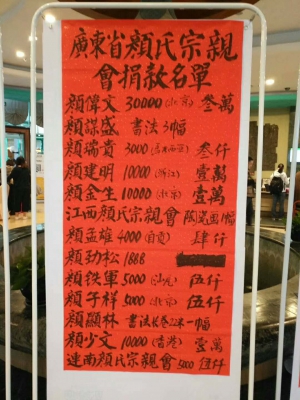 廣東省顏氏宗親
會捐款名單
顏偉文 30000 (北京) 叁萬
顏謀盛 書法3幅
顏瑞貴 3000 叁仟
顏建明 10000 (浙江) 壹萬
顏金生 10000 (北京) 壹萬
江西顏氏宗親會 陶瓷画1幅
顏孟雄 4000 (自貢) 肆仟
顏劲松 1888
顏铁軍 5000 (汕尾) 伍仟
顏子祥 5000 (北京) 伍仟
顏顯林 書法長卷22米一幅
顏少文 10000 (香港) 壹萬
連南顏氏宗親會 5000 伍仟